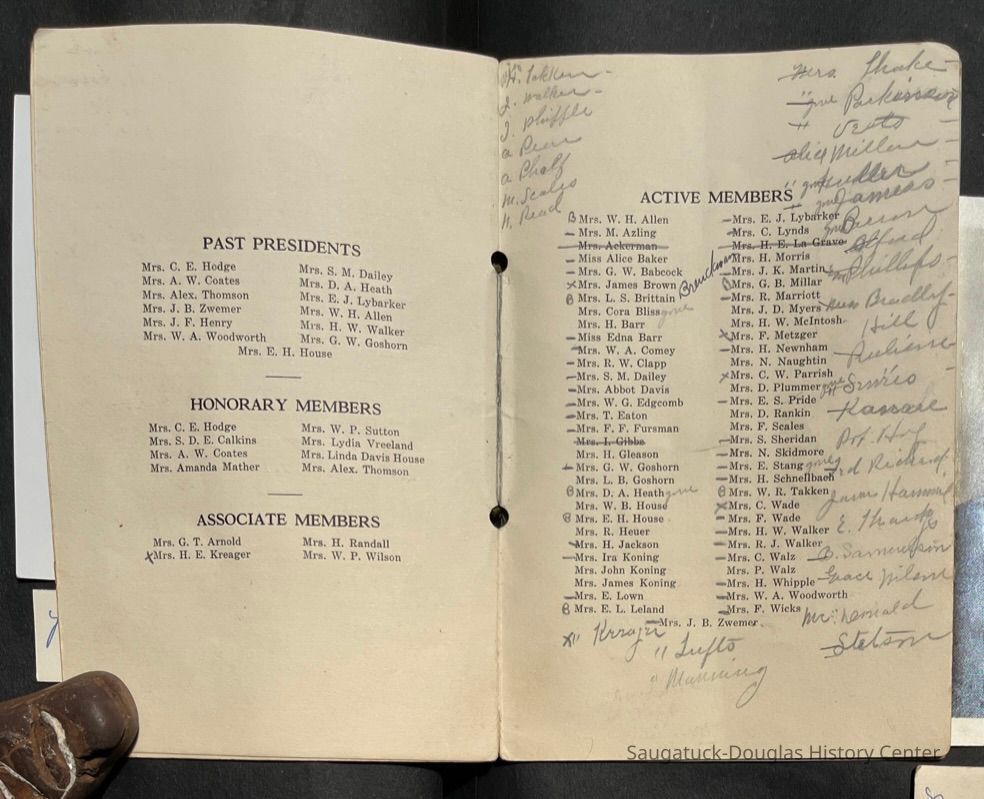 PAST PRESIDENTS
Mrs. C. E. Hodge
Mrs. A. W. Coates
Mrs. Alex. Thomson
Mrs. J. B. Zwemer
Mrs. J. F. Henry
Mrs. W. A. Woodworth
Mrs. S. M. Dailey
Mrs. D. A. Heath
Mrs. E. J. Lybarker
Mrs. W. H. Allen
Mrs. H. W. Walker
Mrs. G. W. Goshorn
Mrs. E. H. House
HONORARY MEMBERS
Mrs. C. E. Hodge
Mrs. S. D. E. Calkins
Mrs. A. W. Coates
Mrs. Amanda Mather
Mrs. W. P. Sutton
Mrs. Lydia Vreeland
Mrs. Linda Davis House
Mrs. Alex. Thomson
ASSOCIATE MEMBERS
Mrs. G. T. Arnold
x Mrs. H. E. Kreager
Mrs. H. Randall
Mrs. W. P. Wilson
H. Takken -
J. Walker -
a Phalf
M. Scales
N. Read
Mrs. Shake -
" Parkinson
" Vento -
Alice Miller -
James -
Phillips -
Bradley -
Hill
ACTIVE MEMBERS
B Mrs. W. H. Allen
- Mrs. M. Azling
Mrs. Ackerman
- Miss Alice Baker
- Mrs. G. W. Babcock
x Mrs. James Brown
B Mrs. L. S. Brittain
Mrs. Cora Bliss gone
Mrs. H. Barr
- Miss Edna Barr
- Mrs. W. A. Comey
- Mrs. R. W. Clapp
- Mrs. S. M. Dailey
- Mrs. Abbot Davis
- Mrs. W. G. Edgcomb
- Mrs. T. Eaton
- Mrs. F. F. Fursman
Mrs. I. Gibbs
Mrs. H. Gleason
- Mrs. G. W. Goshorn
Mrs. L. B. Goshorn
B Mrs. D. A. Heath gone
Mrs. W. B. House
B Mrs. E. H. House
Mrs. R. Heuer
- Mrs. H. Jackson
- Mrs. Ira Koning
Mrs. John Koning
Mrs. James Koning
- Mrs. E. Lown
B Mrs. E. L. Leland
- Mrs. E. J. Lybarker
- Mrs. C. Lynds
Mrs. H. E. La Grave
- Mrs. H. Morris
- Mrs. J. K. Martin
B Mrs. G. B. Millar
- Mrs. R. Marriott
Mrs. J. D. Myers
Mrs. H. W. McIntosh
x Mrs. F. Metzger
- Mrs. H. Newnham
Mrs. N. Naughtin
x Mrs. C. W. Parrish
Mrs. D. Plummer
- Mrs. E. S. Pride
Mrs. D. Rankin
Mrs. F. Scales
- Mrs. S. Sheridan
- Mrs. N. Skidmore
- Mrs. E. Stang gone
- Mrs. H. Schnellbach
B Mrs. W. R. Takken
x Mrs. C. Wade
- Mrs. F. Wade
- Mrs. H. W. Walker
- Mrs. R. J. Walker
- Mrs. C. Walz
Mrs. P. Walz
- Mrs. H. Whipple
- Mrs. W. A. Woodworth
- Mrs. F. Wicks
- Mrs. J. B. Zwemer
E. Tharp
Grace Nilson
Mc. Donald
Stetson
x " Kreager
" Tufts
" Manning
Saugatuck-Douglas History Center